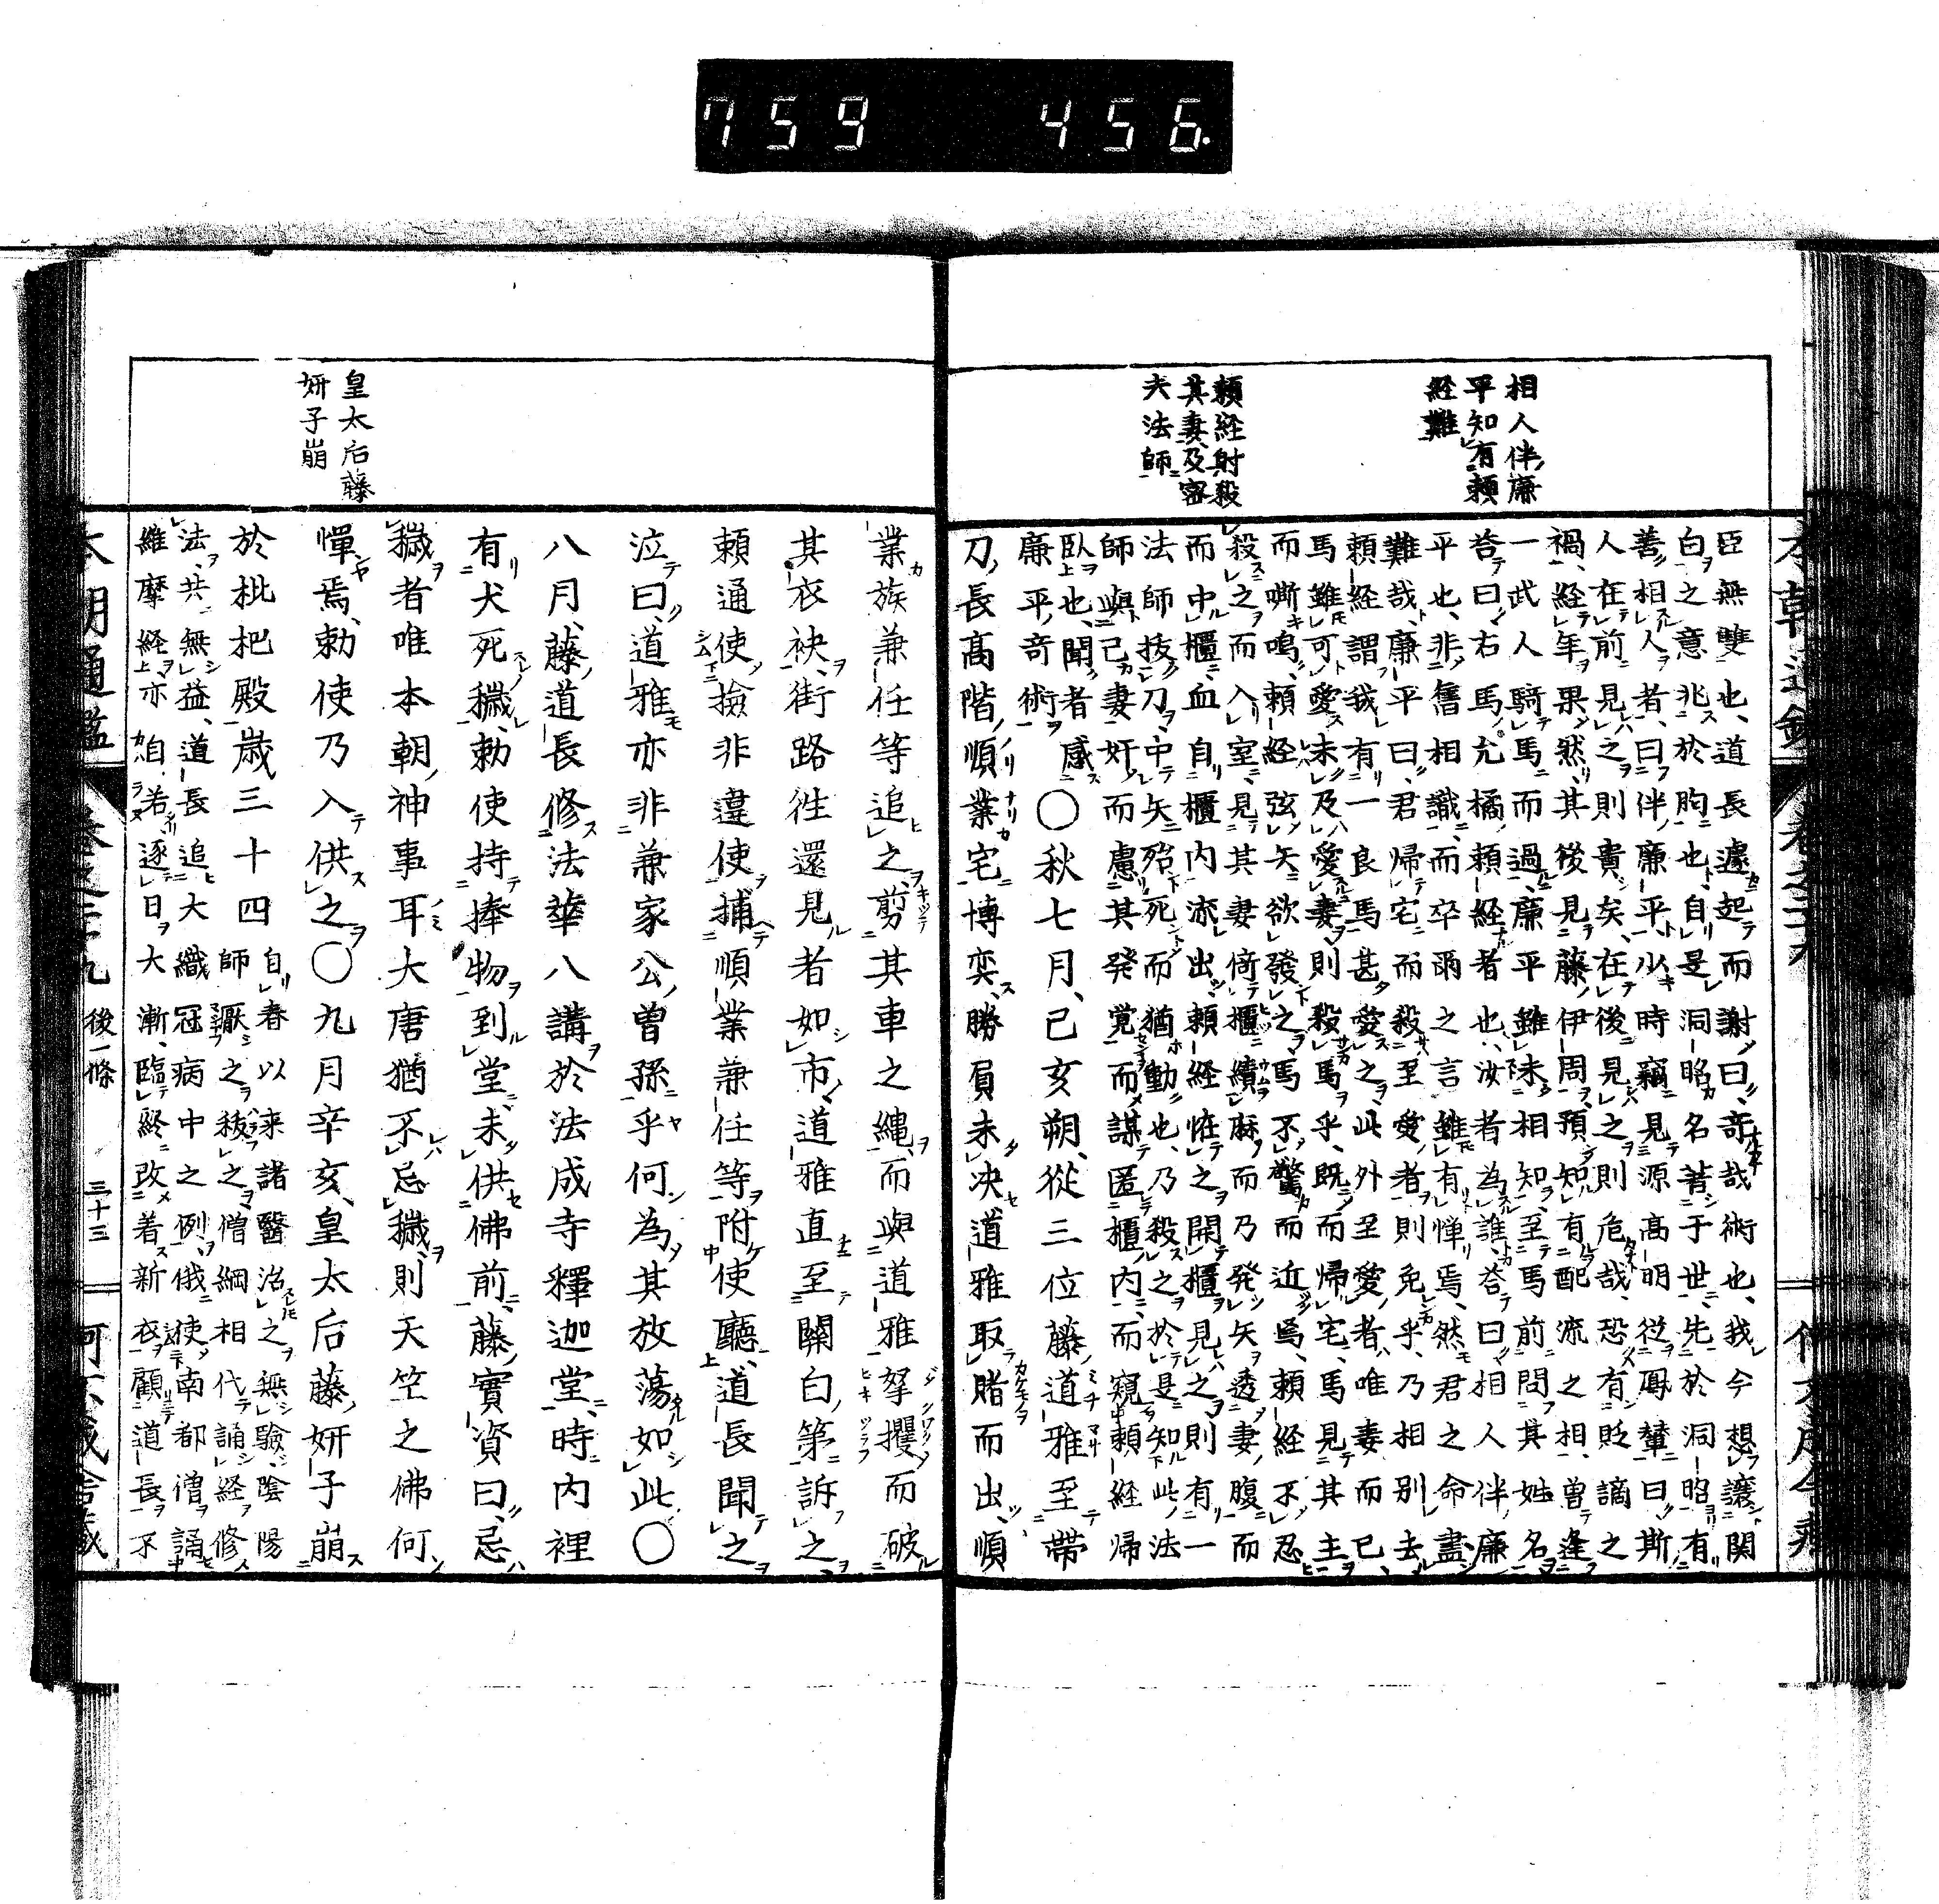 759 456.
相人伴廉
平知有頼
経難
頼経射殺
其妻及密
夫法師
臣無雙也、道長遽起而謝曰、奇哉術也、我今想讓関
白之意兆於胸也、自是洞昭名著于世、先於洞昭有
善相人者、曰伴廉平、少時竊見源高明従鳳輦曰、斯
人在前見之則貴矣、在後見之則危哉、恐有貶謫之
禍、経年果然、其後見藤伊周、預知有配流之相、曽逢
一武人騎馬而過、廉平雖未相知、至馬前問其姓名
答曰、右馬允橘頼経者也、汝者為誰、答曰、相人伴廉
平也、非舊相識、而卒爾之言雖有憚焉、然君之命盡
難哉、廉平曰、君帰宅而殺至愛者、則免乎、乃相別去
頼経謂、我有一良馬甚愛之、此外至愛者、唯妻而已、
馬雖可愛未及愛妻、則殺馬乎、既而帰宅、馬見其主
而嘶鳴、頼経弦矢欲發之、馬不驚而近焉、頼経不忍
殺之而入室、見其妻倚櫃績麻、而乃発矢透妻腹而
而中櫃、血自櫃内流出、頼経恠之開櫃見之則有一
法師抜刀、中矢殆死而猶動也、乃殺之於是知此法
師與己妻奸而慮其発覚而謀匿櫃内、而窺頼経帰
臥也、聞者感
廉平奇術〇秋七月、己亥朔、従三位藤道雅至帯
刀長高階順業宅博奕、勝負未決道雅取賭而出、順
業族兼任等追之、剪其車之縄、而與道雅拏攫而破
其衣袂、街路往還見者如市、道雅直至關白第訴之、
頼通使撿非違使捕順業兼任等附使廳、道長聞之
泣曰、道雅亦非兼家公曽孫乎何為其放蕩如此、〇
八月、藤道長修法華八講於法成寺釋迦堂、時内裡
有犬死穢、勅使持捧物到堂、未供佛前、藤實資曰、忌
穢者唯本朝神事耳大唐猶不忌穢、則天竺之佛何
憚焉、勅使乃入供之〇九月辛亥、皇太后藤妍子崩
於枇杷殿歳三十四
自春以来諸醫治之無驗、陰陽
師厭之祓之僧綱相代誦経修
法、共無益、道長追大織冠病中之例、俄使南都僧誦
維摩経亦自若、逐日大漸、臨終改着新衣、顧道長不
皇太后藤
妍子崩
後一條
三十三